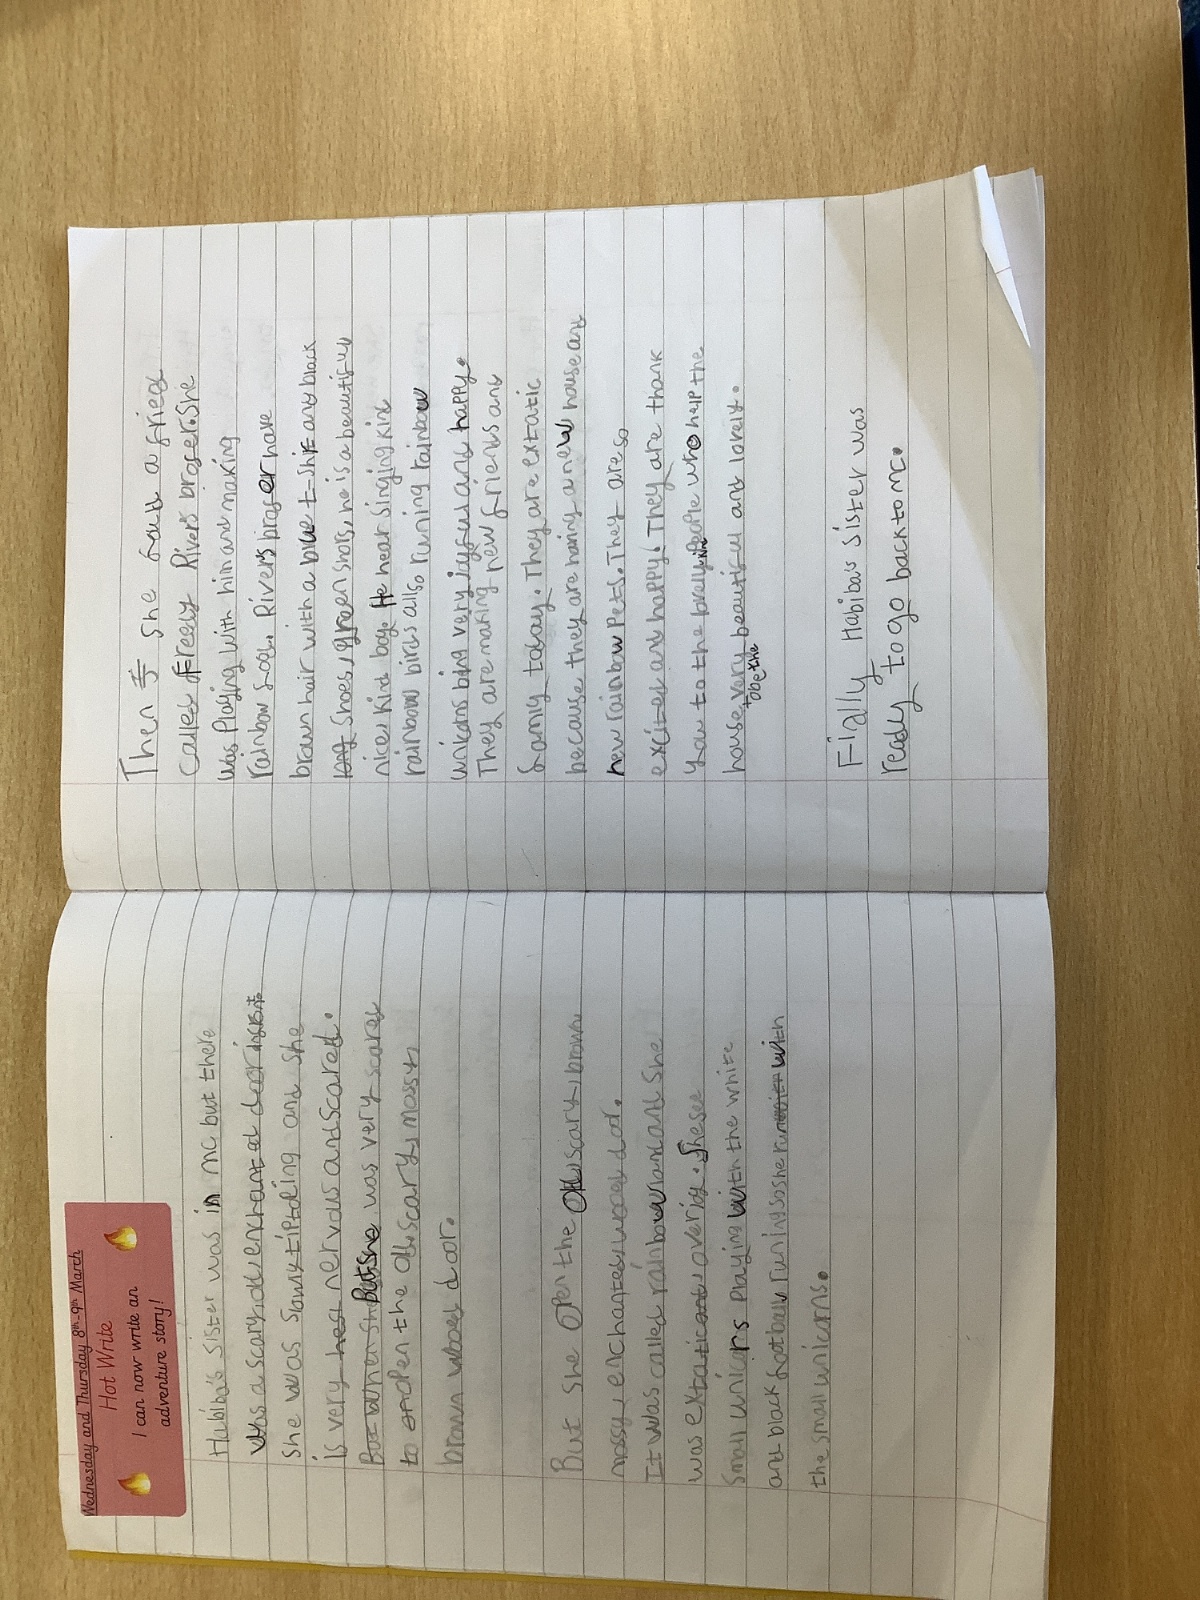 Wednesday and Thursday 8th-9th March
Hot Write
I can now write an
adventure story!
Habiba's sister was in mc but there
was a scary, old, enchanted door in sight
she was slowly tiptoing and she
is very nervous and scared.
But she was very scared
to open the old, scary, mossy
brown wood door.
But she open the old, scary, brown
mossy, enchanted, wood door.
It was called rainbow land and she
was extatic and overjoy. She see
small unicorns playing with the white
and black football runing so she run with
the small unicorns.
Then she found a friend
called Freedy River's broser. She
was playing with him and making
rainbow food. River's broser have
brown hair with a blue t-shirt and black
shoes, green shorts, he is a beautiful
nice, kind boy. He hear singing kind
rainbow birds allso runing rainbow
unicorns bing very joyful and happy.
They are making new friends and
family today. They are extatic
because they are having a new house and
new rainbow pets. They are so
excited and happy! They are thank
you to the lovely, kind people who help the
house very beautiful and lovely.
to be the
Fially Habiba's sister was
ready to go back to mc.